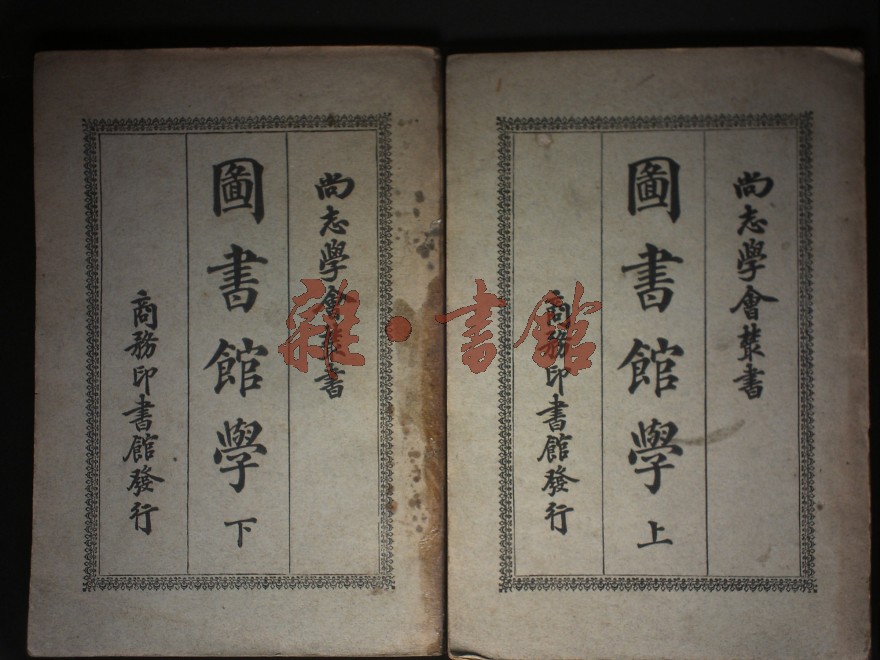 尚志學會叢書
圖書館學 上
商務印書館發行
尚志學會叢書
圖書館學 下
商務印書館發行
雜·書館